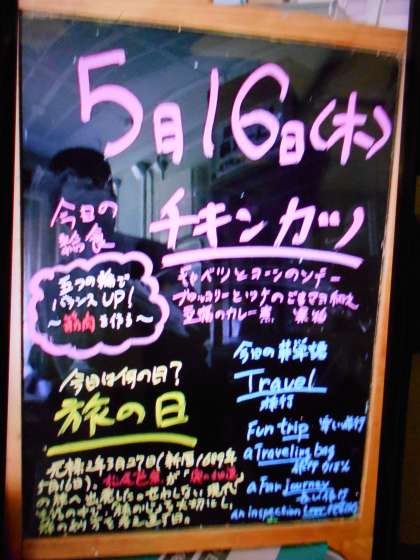 5月16日(木)
今日の
給食
チキンカツ
キャベツとコーンのソテー
ブロッコリーとツナのごまマヨ和え
豆腐のカレー煮 果物
五つの輪で
バランスUP!
~筋肉を作る~
今日は何の日?
旅の日
元禄2年3月27日(新暦1689年
5月16日)、松尾芭蕉が「奥の細道」
の旅へ出発した。せわしない現代
今日の英単語
Travel
旅行
Fun trip 楽しい旅行
a Traveling bag
旅行かばん
a Far Journey
長い旅行
an inspection